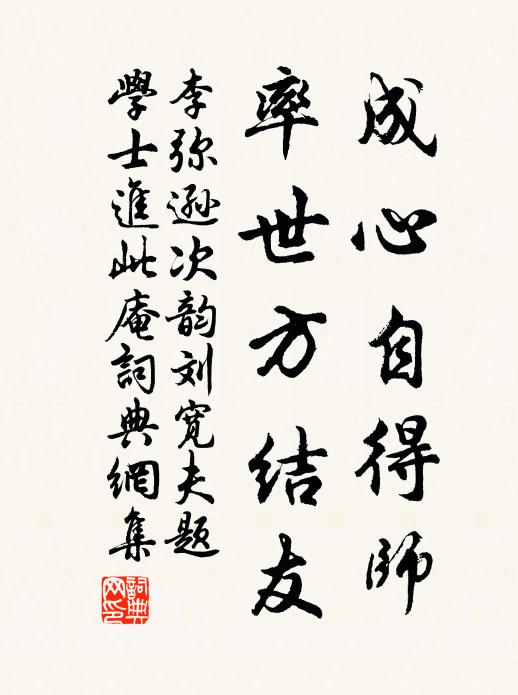 成心自得師
率世方結友
李弥遜次韵刘寛夫題
學士進此庵詞典網集
詞典網印